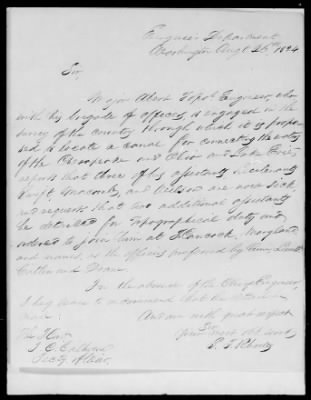 Engineer Department
Washington Augt 25th 1824
Sir,
Major Abert Topol. Engineer, who
with his brigade of officers, is engaged in the
survey of the country through which it is propo-
sed to locate a canal for connecting the waters
of the Chesapeake and Ohio and Lake Erie
reports that three of his assistants Lieutenants
Swift, Macomb, and are now sick,
and requests that two additional assistants
be detailed for Topographical duty and
ordered to join him at Hancock, Maryland
and names, as the officers preferred by him, Lieuts.
and
In the absence of the Chief Engineer,
I beg leave to recommend that the
And am with great respect
Your most obt Servt
The Hon.
J. C. Calhoun
Secty of War.